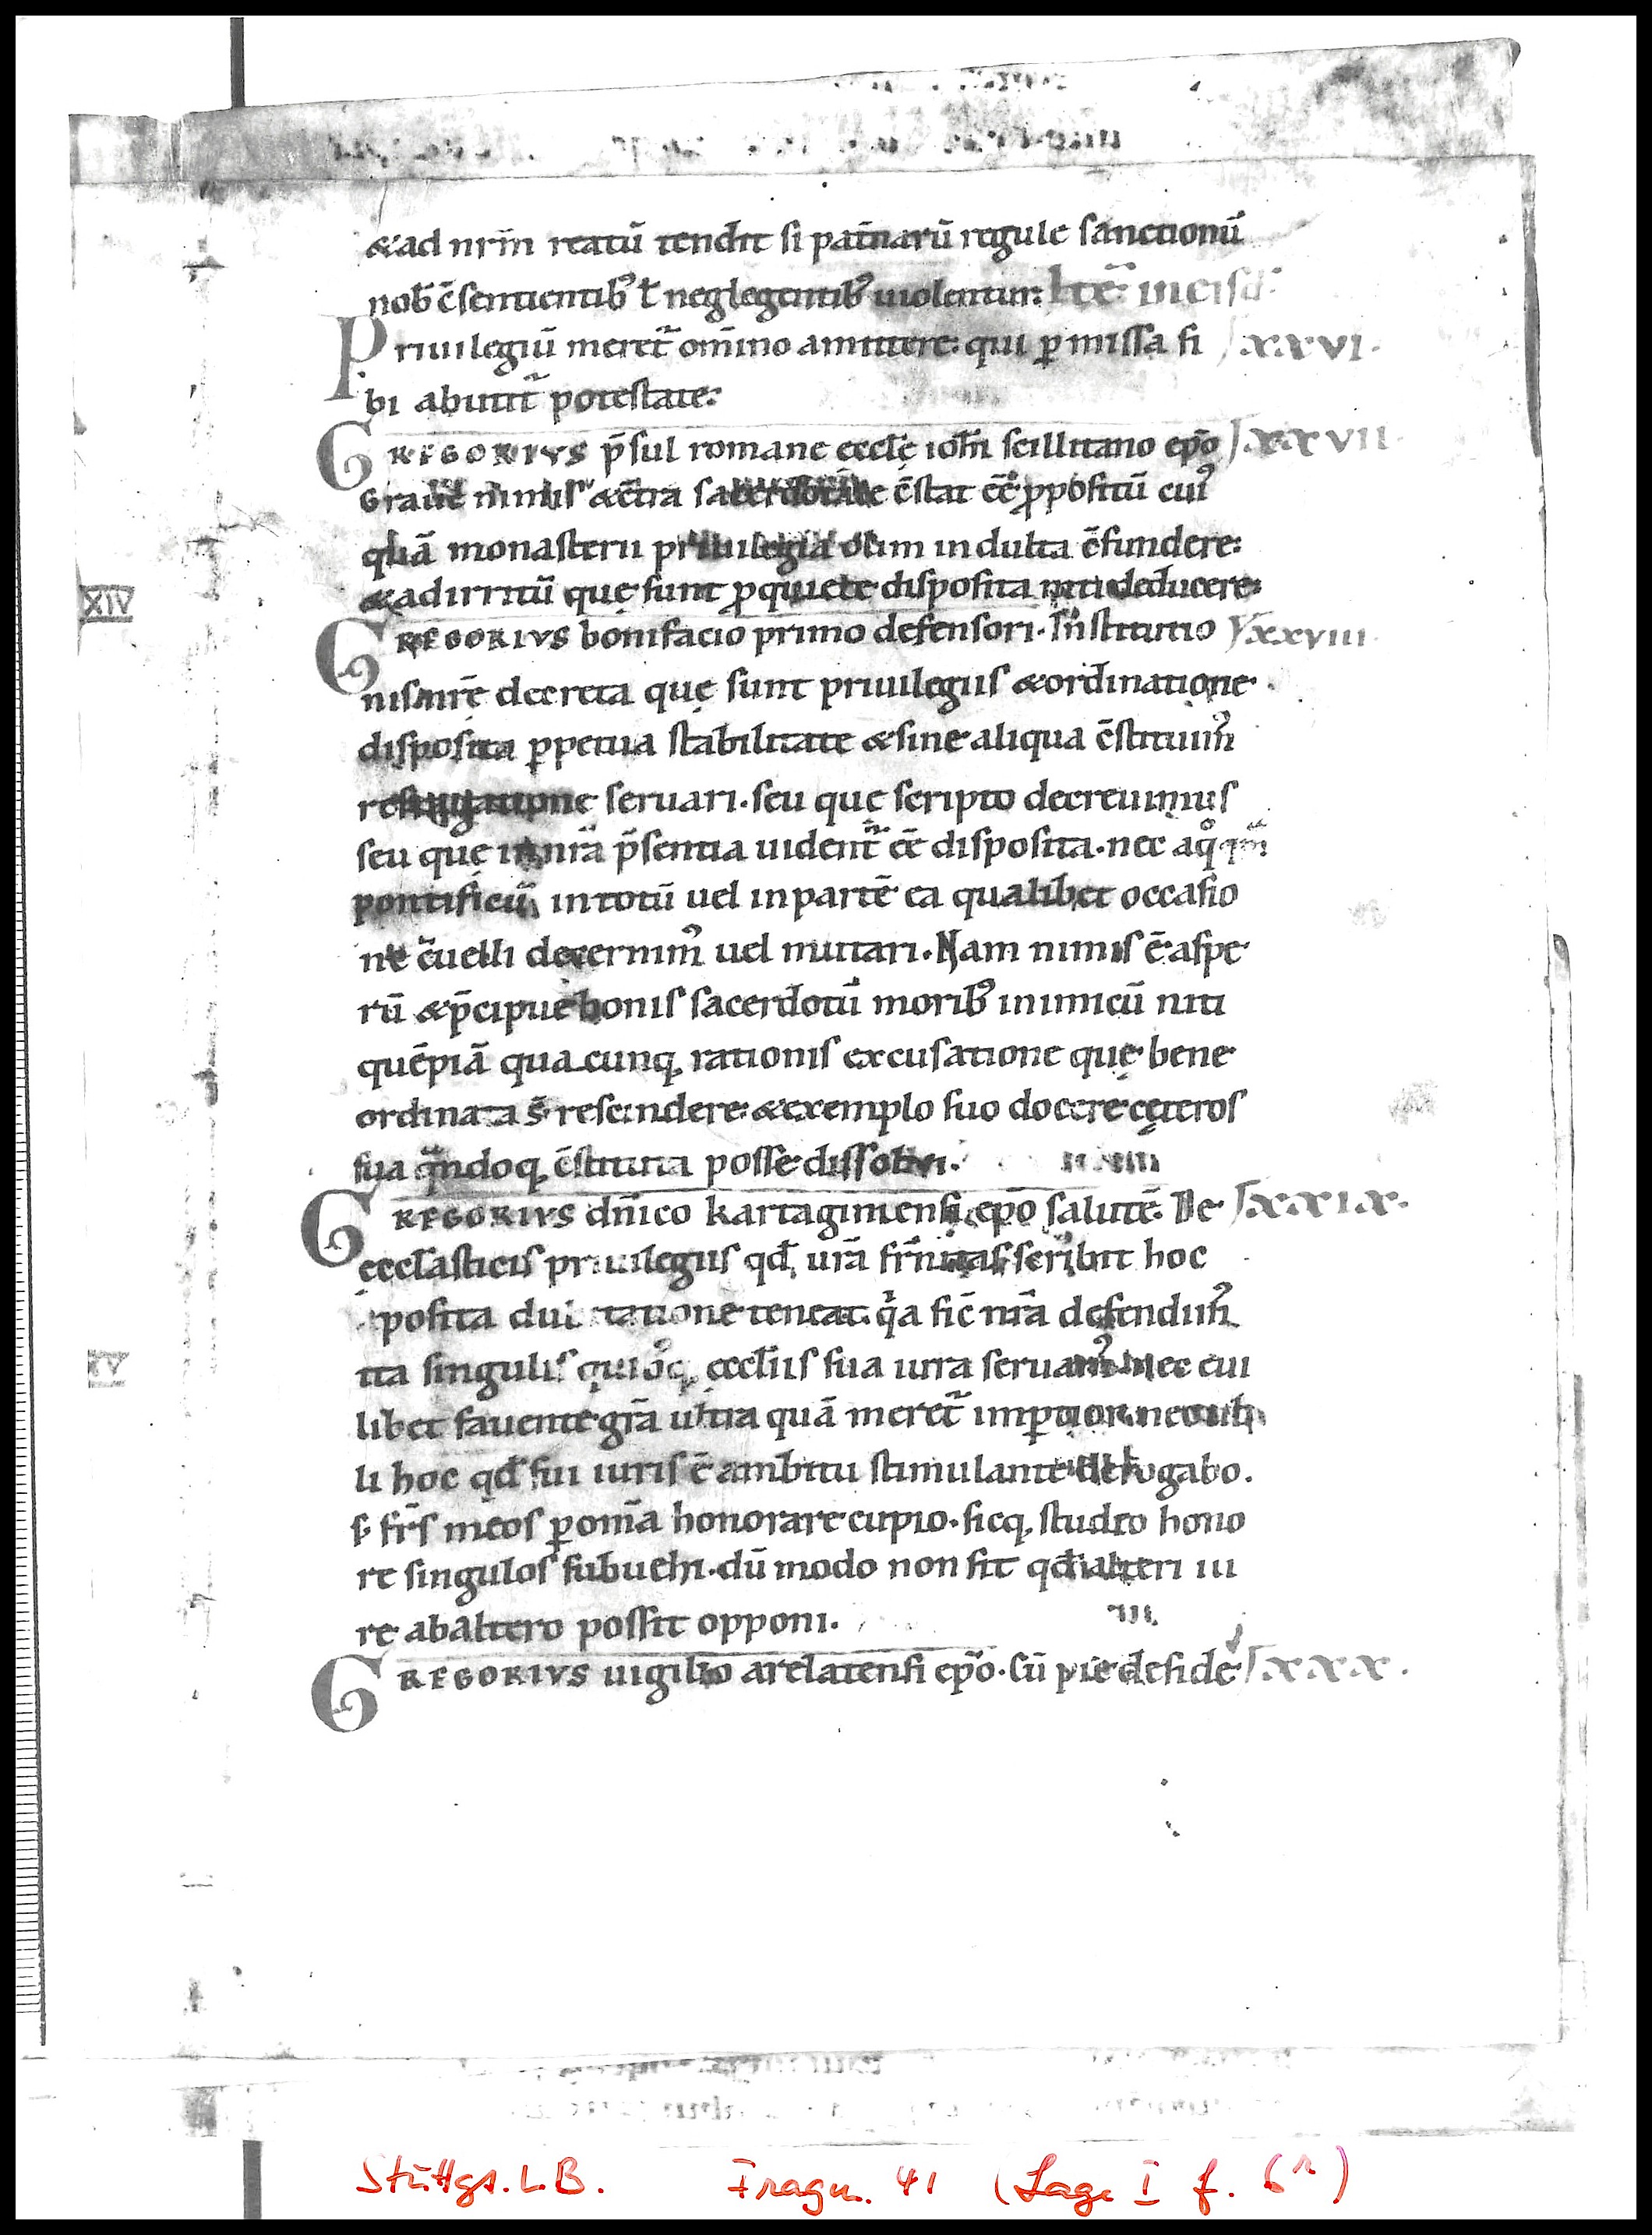 &ad nr̄m reatū tendit si pat̄narū regule sanctionū
nob̄ c̄sentientib᾽ ł neglegentib᾽ uiolentur: Itē incisā
Priuilegiū meret̄ om̄ino amittere. qui ꝑmissa si XXVI.
bi abutit̄ potestate.
GREGORIVS p̄sul romane ęccl̄ę ioh̄i scillitano ep̄o XXVII.
Graue nimis &c̄tra sacerdotale c̄stat ēē ꝓpositū cui᾽
quā monasterii priuilegia olim indulta c̄fundere:
&adirritū quę sunt ꝓquiete disposita niti deducere:
GREGORIVS bonifacio primo defensori. Institutio XXVIII.
nis nr̄ę decreta quę sunt priuilegiis &ordinatione
disposita ꝑpetua stabilitate &sine aliqua c̄stituim᾽
refragatione seruari. seu quę scripto decreuimus
seu quę innr̄a p̄sentia uident̄ ēē disposita. nec aq̊qm̄
pontificū intotū uel inpartē ea qualibet occasio
ne c̄uelli decernim᾽ uel mutari. Nam nimis ē aspe
rū &p̄cipue bonis sacerdotū morib᾽ inimicū niti
quēpiā qua cunq; rationis excusatione quę bene
ordinata s̄ rescindere &exemplo suo docere cęteros
sua q̄ndoq; c̄stituta posse dissolui.
GREGORIVS dn̄ico kartaginiensi ep̄o salutē. De XXIX.
ęccl̄asticis priuilegiis qd̄ ur̄a fr̄nitas scribit hoc
posita du tatione teneat. q̇a sic̄ nr̄a defendim᾽
ita singulis quibq; ęccl̄iis sua iura seruam᾽. Nec cui
libet fauente gr̄a ultra quā meret̄ imꝑtior. nec ul
li hoc qd̄ sui iuris ē ambitu stimulante derogabo.
s; fr̄s meos ꝑom̄a honorare cupio. sicq; studeo hono
re singulos subuehi. dū modo non sit qd̄ alteri iu
re abaltero possit opponi.
GREGORIVS uigilio arelatensi ep̄o. Cū pie deside XXX.
XIV
XV
Stuttgt. L.B. Fragm. 41 (Lage I f. 6r)